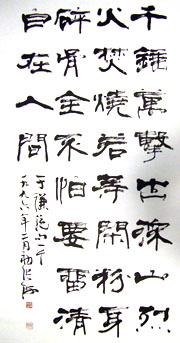 千錘萬擊出深山烈
火焚燒若等閑粉身
碎骨全不怕要留清
白在人間
于謙詩
一九九八年二月